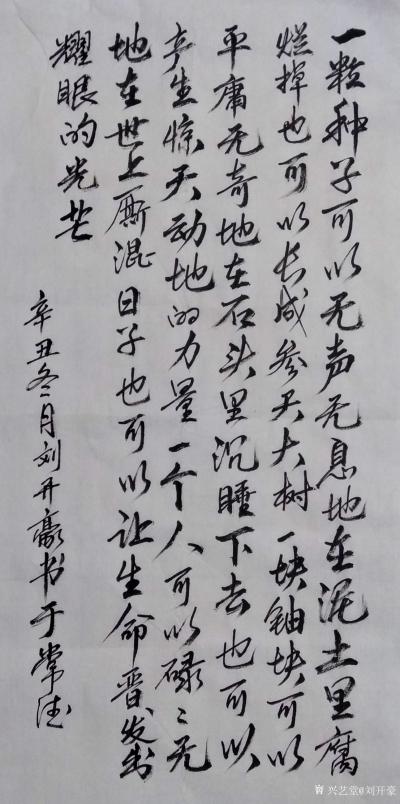 一粒种子可以无声无息地在泥土里腐
烂掉也可以长成参天大树一块铀块可以
平庸无奇地在石头里沉睡下去也可以
产生惊天动地的力量一个人可以碌々无
地在世上厮混日子也可以让生命晋发出
耀眼的光芒
辛丑冬月刘开豪书于常德
兴艺堂@刘开豪